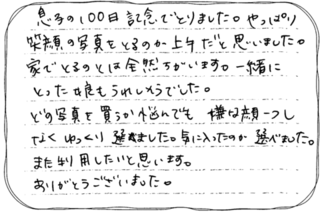 息子の100日記念でとりました。やっぱり
笑顔の写真をとるのが上手だと思いました。
家でとるのとは全然ちがいます。一緒に
とった娘もうれしそうでした。
どの写真を買うか悩んでも 嫌な顔一つし
なくゆっくり選べました。気に入ったのか選べました。
また利用したいと思います。
ありがとうございました。